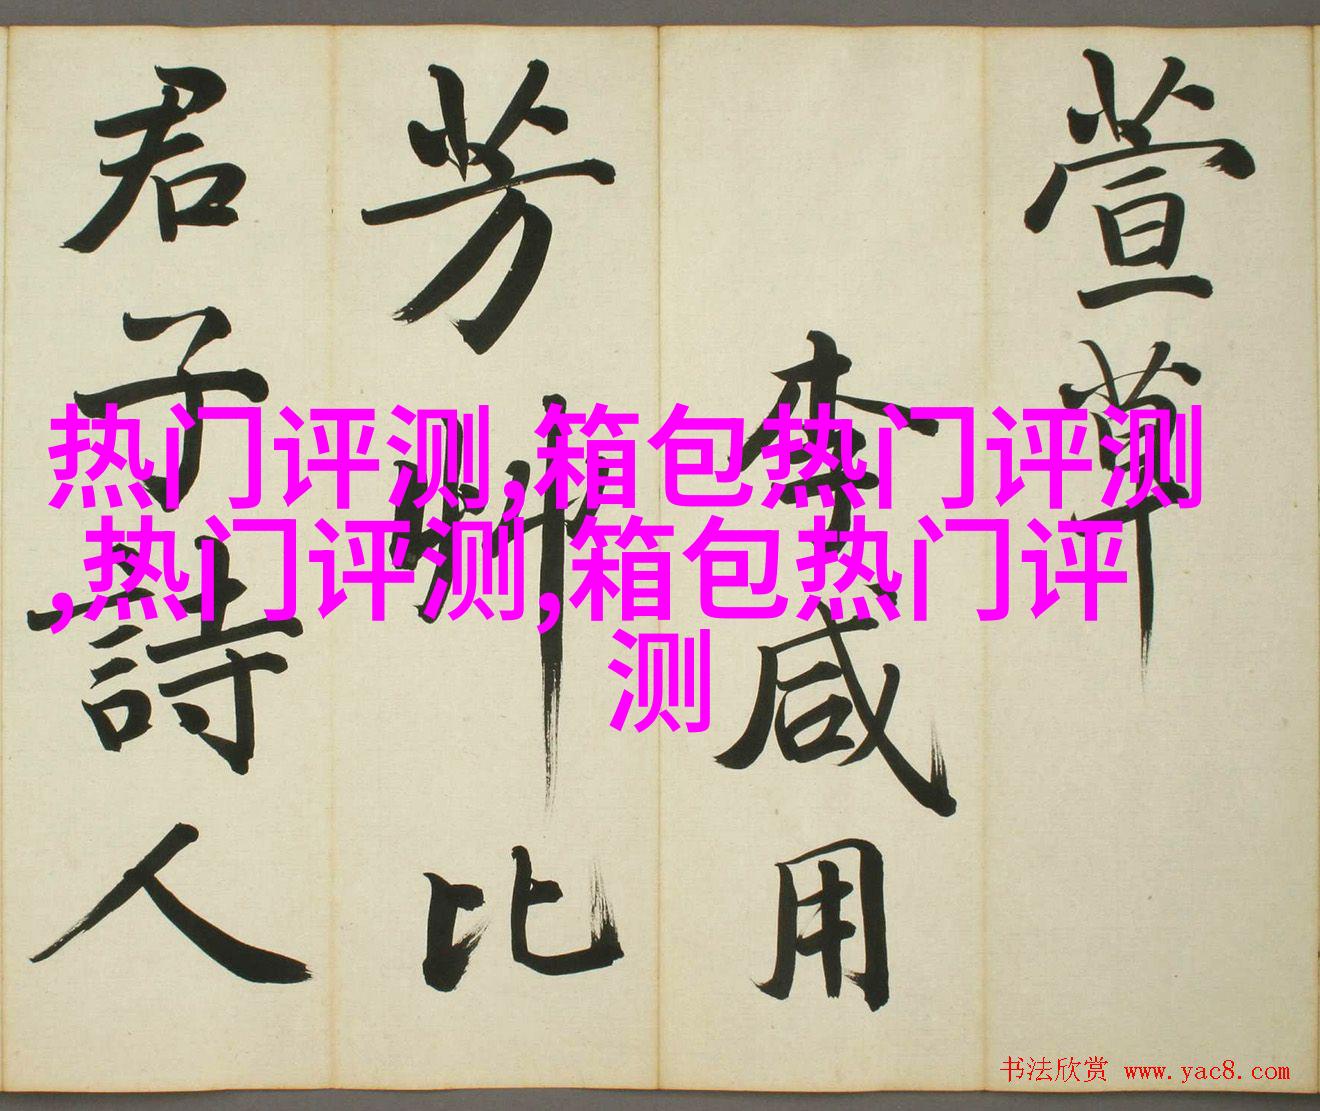 萱草
李咸用
芳艸比
君子詩人
热门评测,箱包热门评测
,热门评测,箱包热门评
测
书法欣赏 www.yac8.com